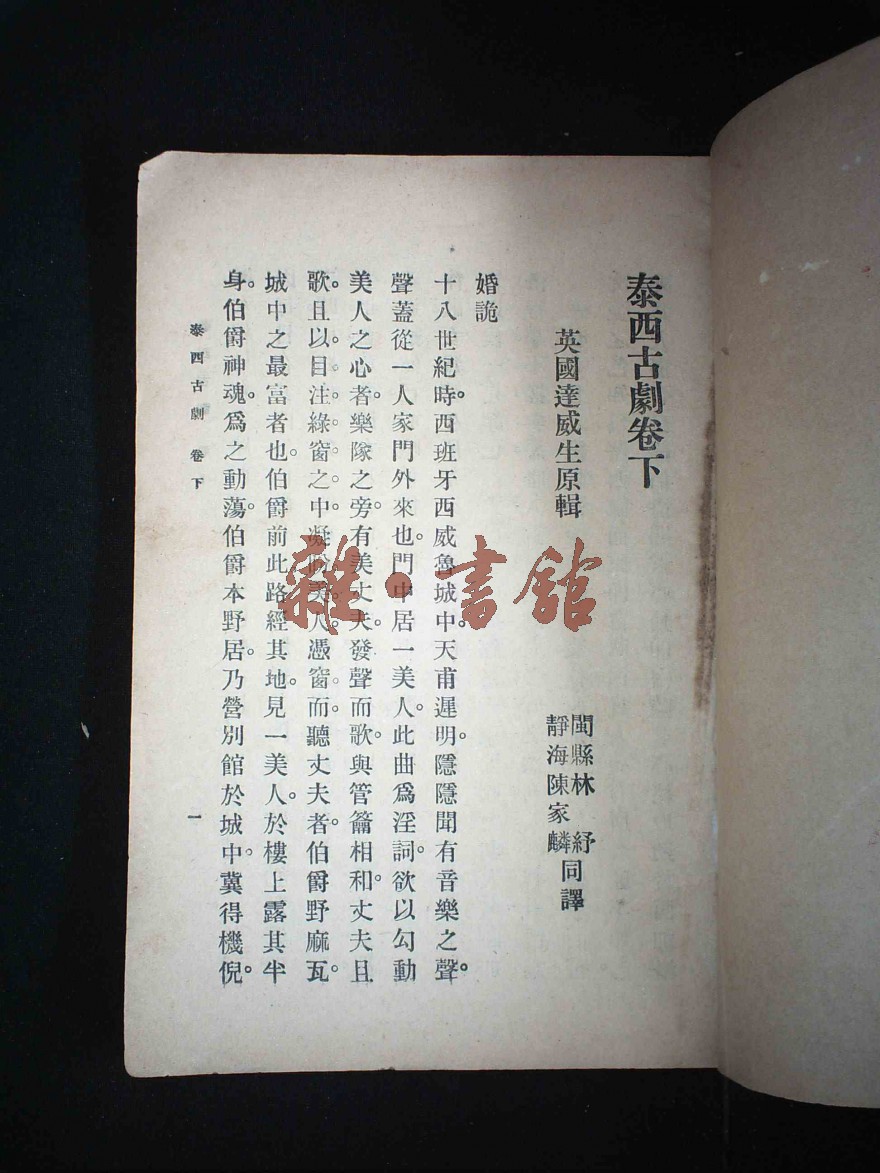 泰西古劇卷下
英國達威生原輯
閩縣林紓
靜海陳家麟
同譯
婚詭
十八世紀時。西班牙西威魯城中。天甫遲明。隱隱聞有音樂之聲。
聲蓋從一人家門外來也。門中居一美人。此曲爲淫詞。欲以勾動
美人之心者。樂隊之旁。有美丈夫發聲而歌。與管籥相和。丈夫且
歌。且以目注綠窗之中。凝盼美人憑窗而聽。丈夫者。伯爵野麻瓦。
城中之最富者也。伯爵前此路經其地。見一美人。於樓上露其半
身。伯爵神魂爲之動蕩。伯爵本野居。乃營別館於城中。冀得機倪。
泰西古劇 卷下
一
雜·書館